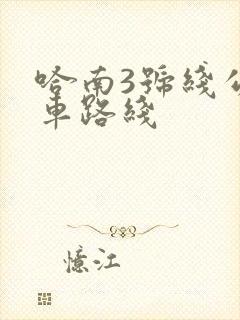 哈南3號綫公
車路綫
憶江